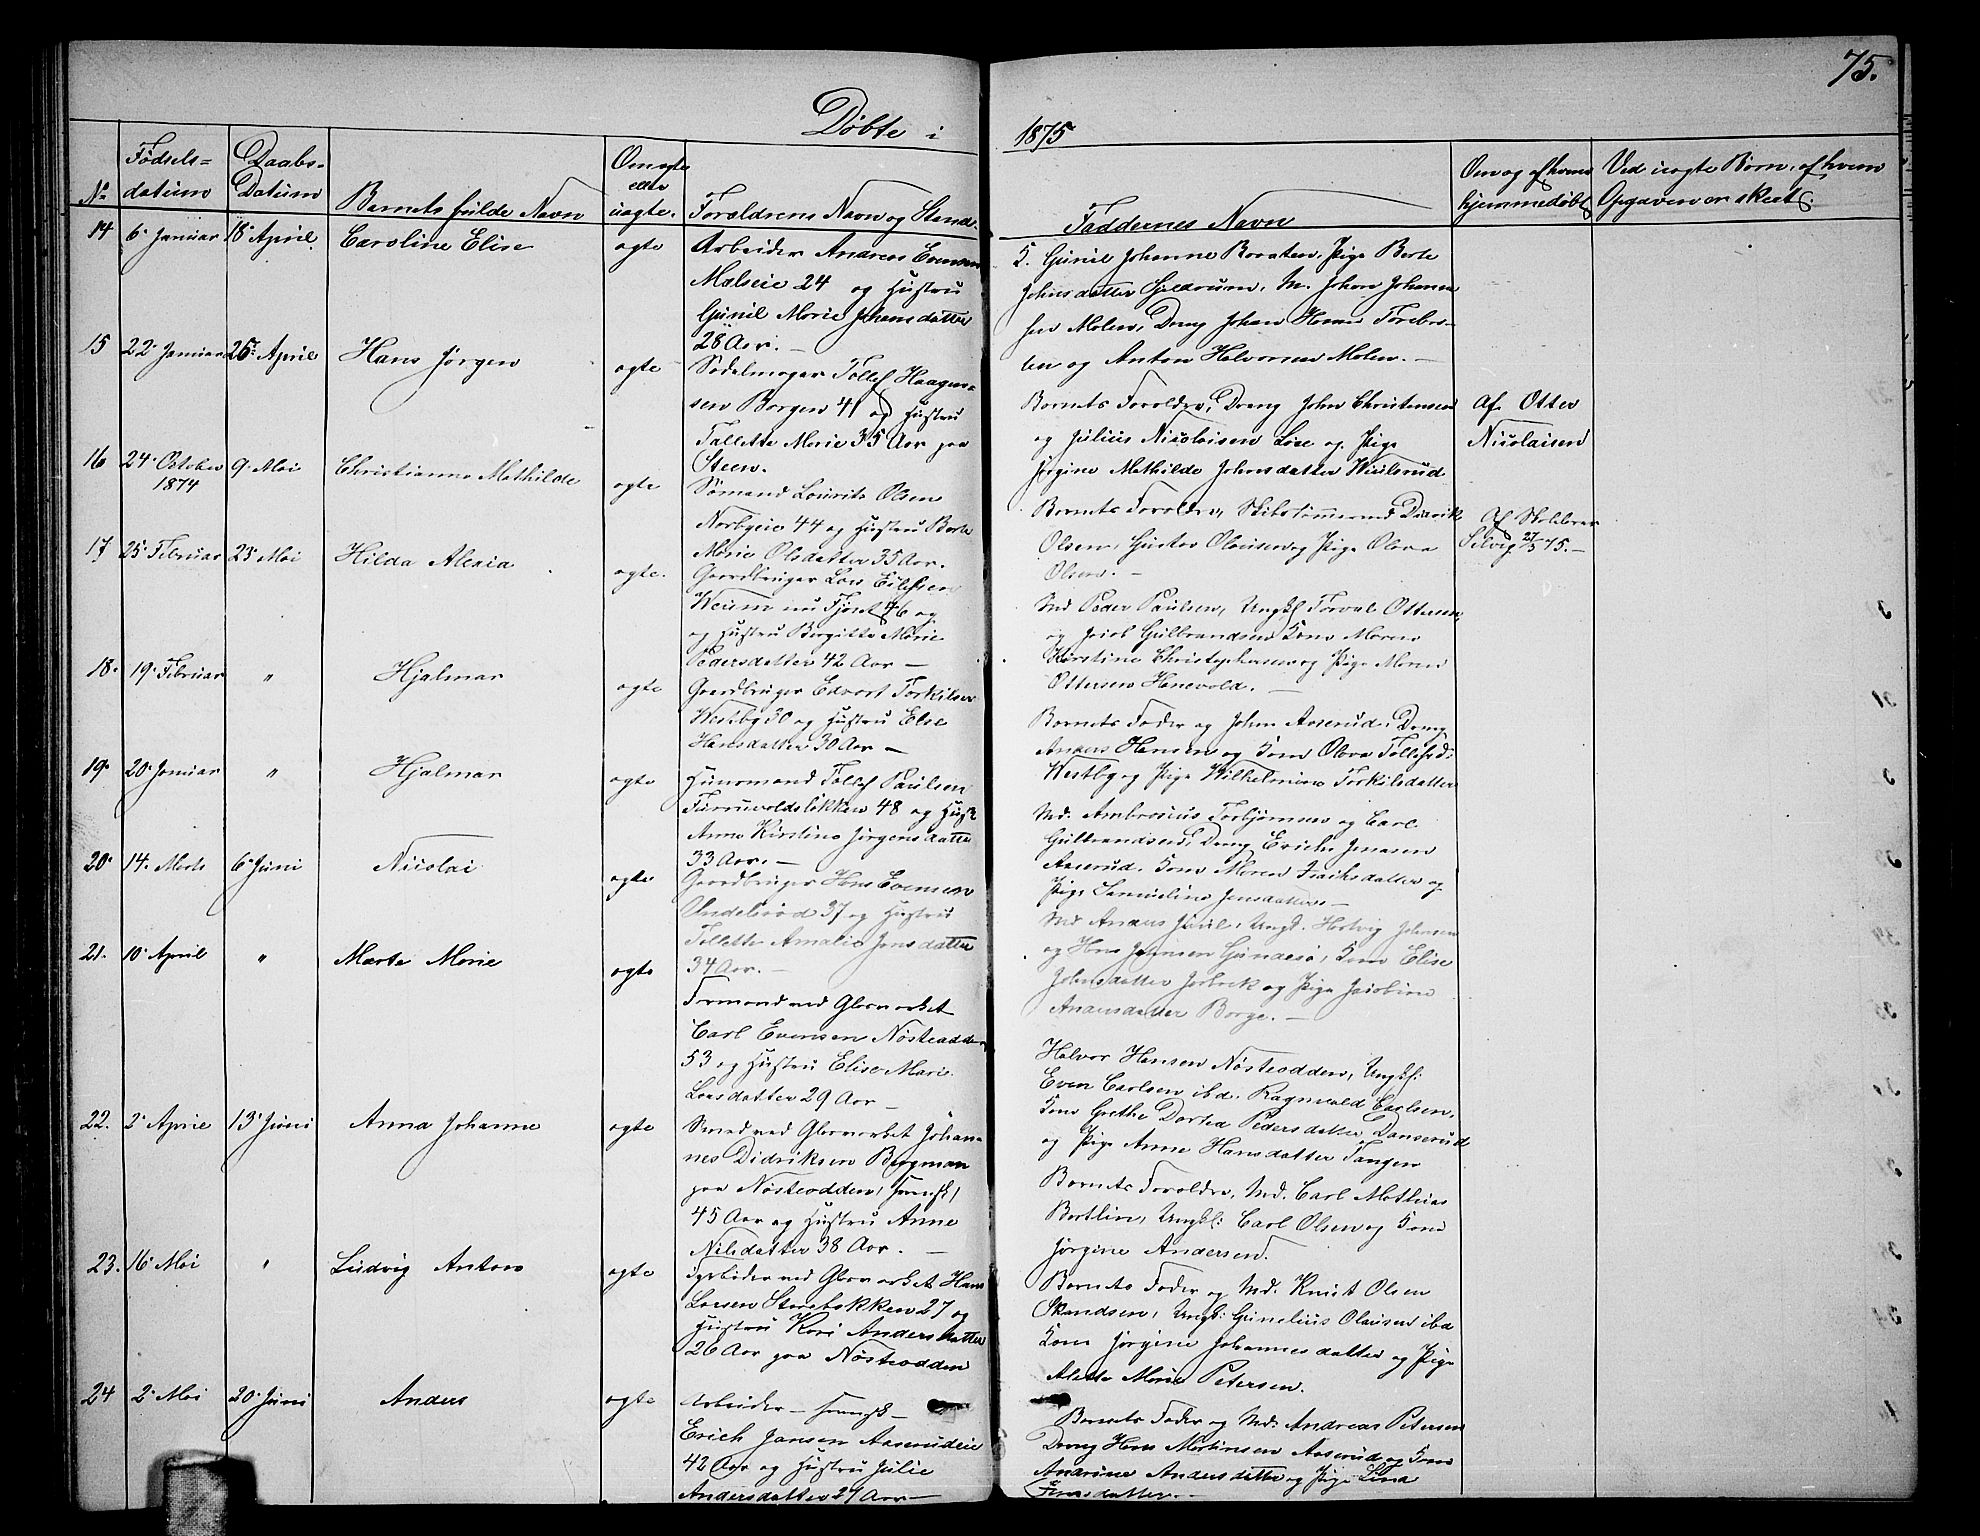 75.
Døbte i 1875
No
Fødsels=
datum
Daabs=
Datum
Barnets fulde Navn
Om ægte
eller
uægte.
Forældrenes Navn og Stand.
Faddernes Navn
Om og af hvem
hjemmedøbt
Ved uægte Børn, af hvem
Opgaven er skeet.
14 6' Januar 18' April Caroline Elise ægte
Arbeider Andreas Evensen
Mælseie 24 og Hustru
Gunil Marie Johansdatter
28 Aar. —
5. Gunil Johanne Braaten, Pige Berte
Johnsdatter Gjeldrum, M. Johan Johanne
sen Molen, Dreng Johan
og Anton Halvorsen Molen. —
15 22' Januar 25' April Hans Jørgen ægte
Sadelmager Tollef Haagen=
sen Borgen 41 og Hustru
Tallette Marie 35 Aar paa
Steen.
Barnets Forældre, Dreng John Christensen
og Julius Nicolaisen Løse og Pige
Jørgine Mathilde Johnsdatter Wiulsrud
Af Otter
Nicolaisen
16 24' October 9' Mai Christianne Mathilde ægte
1874
Sømand Lourits Olsen
Norbyeie 44 og Hustru Berte
Marie Olsdatter 35 Aar.
Barnets Forældre, Skibstømmermd Didrik
Olsen, Gustav Olausen og Pige Olava
Olsen. —
Af Skoleber
Selvig 27/3 75. —
17 25' Februar 23' Mai Hilda Alexia ægte.
Gaardbruger Lars Eilefsen
Weum nu Fjøret 46 og
og Hustru Birgitte Marie
Pedersdatter 42 Aar —
Md Peder Paulsen, Ungkl Torval Ottersen
og Jacob Gulbrandsen Kone Maren
Kirstine Christophersen og Pige Maren
Ottersen Hanevold. —
18. 19' Februar " Hjalmar ægte
Gaardbruger Edvart Torkilsen
Westby 30 og Hustru Else
Hansdatter 30 Aar —
Barnets Fader og John Aaserud, Dreng
Anders Hansen og Kone Olava Tollefsd:
Westby og Pige Wilhelmine Torkilsdatter
19' 20' Januar " Hjalmar ægte
Huusmand Tollef Paulsen
Furruvoldsløkken 48 og Hust
Anne Kirstine Jørgensdatter
33 Aar. —
Md. Ambrosius Torbjørnsen og Carl
Gulbrandsen, Dreng Erich Jensen
Aaserud. Kone Maren Isaksdatter og
Pige Samueline Jensdatter —
20' 14. Marts 6' Juni Nicolai ægte
Gaardbruger Hans Evensen
Undelsrød 37 og Hustru
Tollette Amalie Jensdatter
34 Aar. —
Md Anders Juul, Ungk. Hartvig Johnsen
og Hans Jensen Gundesø, Kone Elise
Johnsdatter Jarbrek og Pige Jacobine
Andersdatter Borge. —
21. 10' April " Marte Marie ægte
Formand ved Glasværket
Carl Evensen Nøsteodden
53 og Hustru Elise Marie
Larsdatter 29 Aar —
Halvor Hansen Nøsteodden, Ungkl:
Even Carlsen ibd. Ragnvald Carlsen.
Kone Grethe Dorthea Pedersdatter Danserud
og Pige Anne Hansdatter Tangen
22. 2' April 13' Juni Anna Johanne ægte
Smed ved Glasværket Johan=
nes Didriksen Bergman
paa Nøsteodden, svensk,
45 Aar og Hustru Anne
Nilsdatter 38 Aar. —
Barnets Forældre, Md. Carl Mathias
Bertlin, Ungkl: Carl Olsen og Kone
Jørgine Andersen.
23. 16' Mai " Ludvig Anton ægte
Fyrbøder ved Glasværket Hans
Larsen Storebakken 27 og
Hustru Kari Andersdatter
26 Aar paa Nøsteodden
Barnets Fader og Md. Knut Olsen
Skandsen, Ungk: Gunelius Olausen ibd
Kone Jørgine Johannesdatter og Pige
Alette Marie Petersen.
24 2' Mai 20' Juni Anders ægte
Arbeider — svensk —
Erich Jansen Aaserudeie
42 Aar og Hustru Julie
Andersdatter 21 Aar —
Barnets Fader og Md: Andreas Petersen
Dreng Hans Martinsen Aaserud og Kone
Andrine Andersdatter og Pige Lina
Jensdatter. —